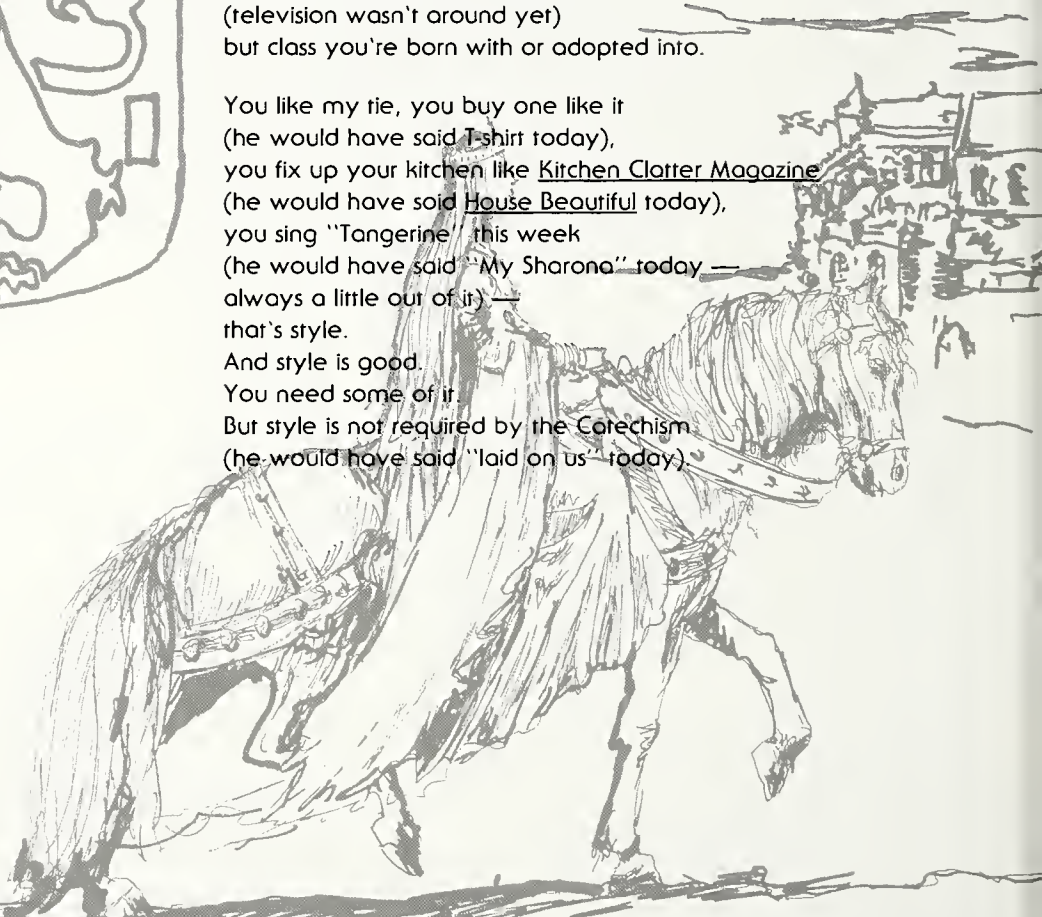 (television wasn't around yet)
but class you're born with or adopted into.

You like my tie, you buy one like it
(he would have said T-shirt today),
you fix up your kitchen like Kitchen Clatter Magazine
(he would have said House Beautiful today),
you sing "Tangerine" this week
(he would have said "My Sharona" today —
always a little out of it) —
that's style.
And style is good.
You need some of it.
But style is not required by the Catechism
(he would have said "laid on us" today).